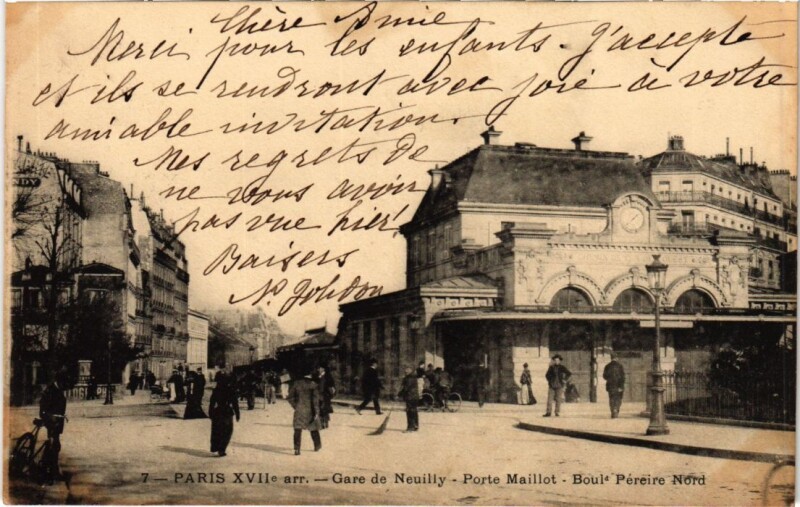 Chère Amie
Merci pour les enfants. J'accepte
et ils se rendront avec joie à votre
amiable invitation.
Mes regrets de
ne vous avoir
pas vue hier!
Baisers
7 — PARIS XVIIe arr. — Gare de Neuilly - Porte Maillot - Bould Péreire Nord